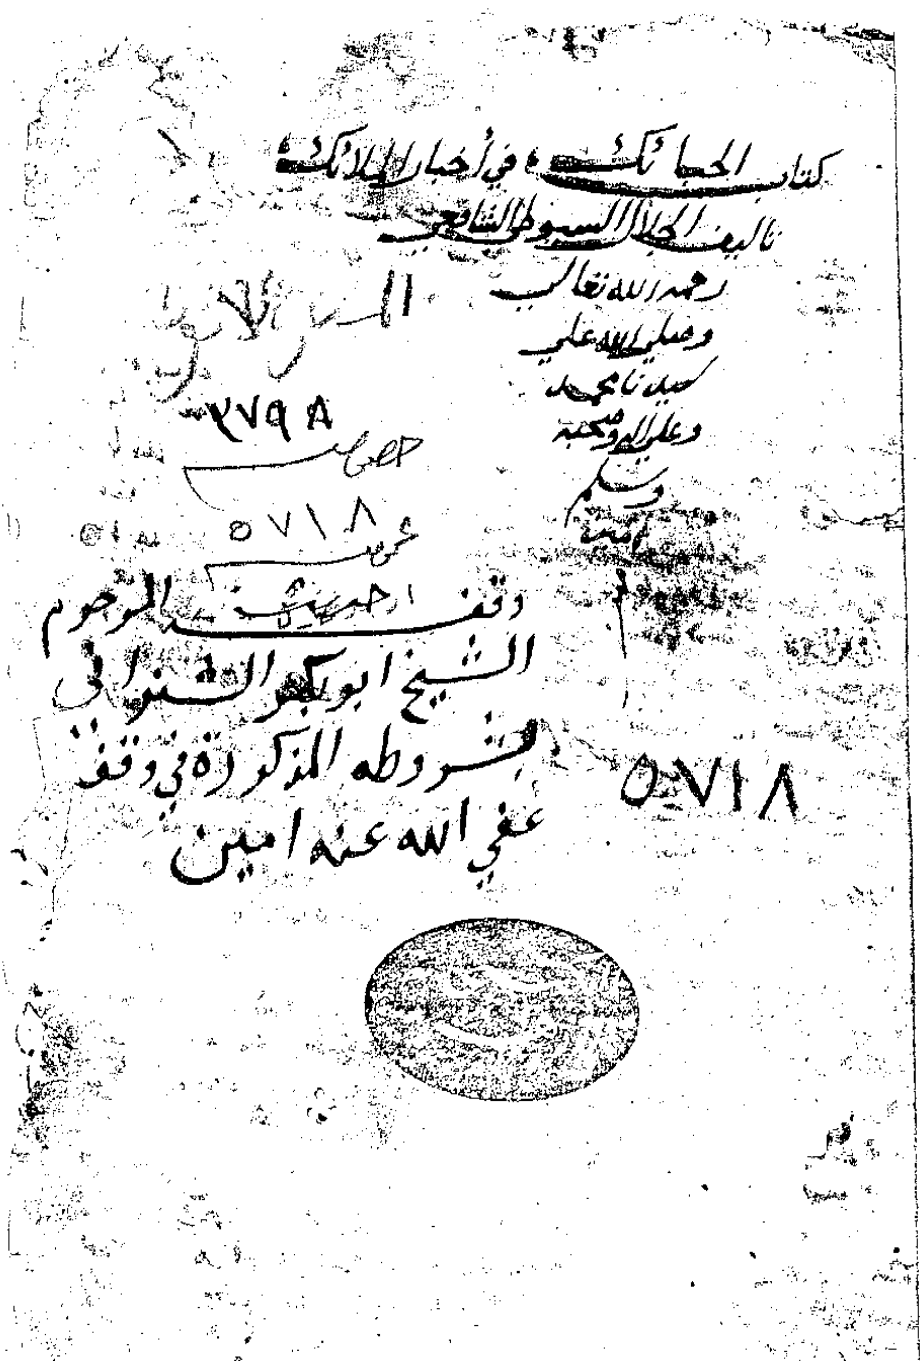 كتاب الحبائك في أخبار الملائك
تاليف الجلال السيوطي الشافعي
رحمه الله تعالى
وصلى الله علي
سيدنا محمد
وعلى اله وصحبه
وسلم
امين
٣٧٩٨
خصوص
٥٧١٨
عمومى
وقف المرحوم
الشيخ ابو بكر الشنواني
بشروطه المذكورة في وقفه
عفي الله عنه امين
٥٧١٨